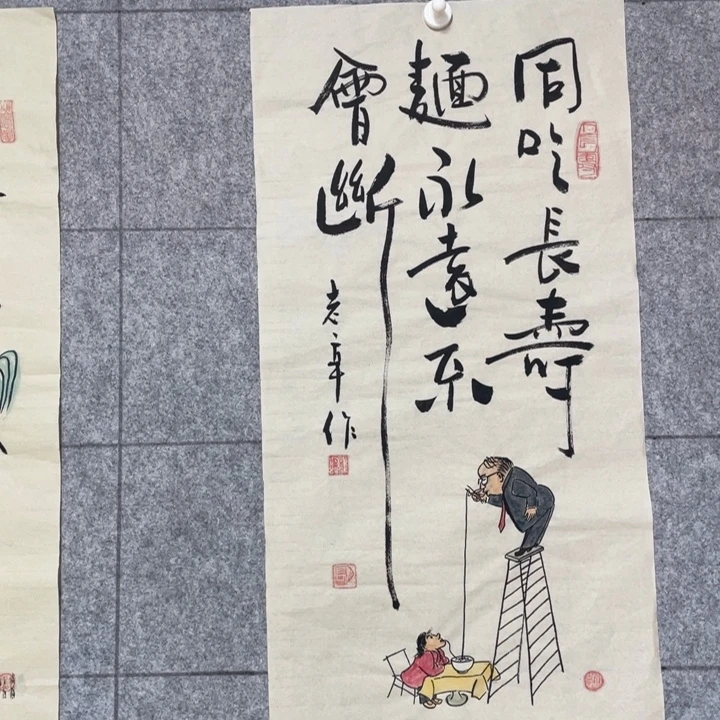 同吃長壽
麵永遠不
會斷
老章作